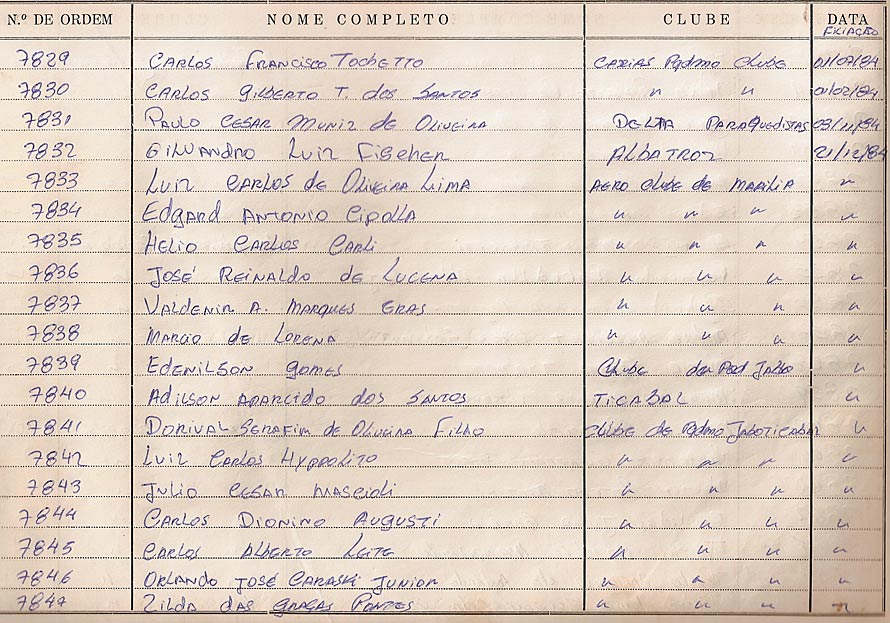 N.º DE ORDEM NOME COMPLETO CLUBE DATA
FILIAÇÃO
7829 CARLOS FRANCISCO TOCHETTO CAXIAS Pqdmo CLUBE 01/07/84
7830 CARLOS GILBERTO T. dos SANTOS " " 01/02/84
7831 PAULO CESAR MUNIZ de OLIVEIRA DELTA PARAQUEDISTAS 03/11/84
7832 GILVANDRO LUIZ FISCHER ALBATROZ 21/12/84
7833 LUIZ CARLOS de OLIVEIRA LIMA AERO CLUBE de MARÍLIA "
7834 Edgard ANTONIO CIPOLLA " " " "
7835 HELIO CARLOS CARLI " " " "
7836 JOSÉ REINALDO de LUCENA " " " "
7837 VALDENIR A. MARQUES ERAS " " " "
7838 MARCIO de LORENA " " " "
7839 EDENILSON GOMES CLUBE de "
7840 ADILSON APARECIDO dos SANTOS TICABAL "
7841 DORIVAL SERAFIM de OLIVEIRA FILHO CLUBE de Pqdmo JABOTICABAL "
7842 LUIZ CARLOS HYPPOLITO " " " "
7843 JULIO CESAR MASCIOLI " " " "
7844 CARLOS DIONINO AUGUSTI " " " "
7845 CARLOS ALBERTO LEITE " " " "
7846 ORLANDO JOSÉ CARASKI JUNIOR " " " "
7847 ZILDA DAS GRAÇAS PONTES " " " "